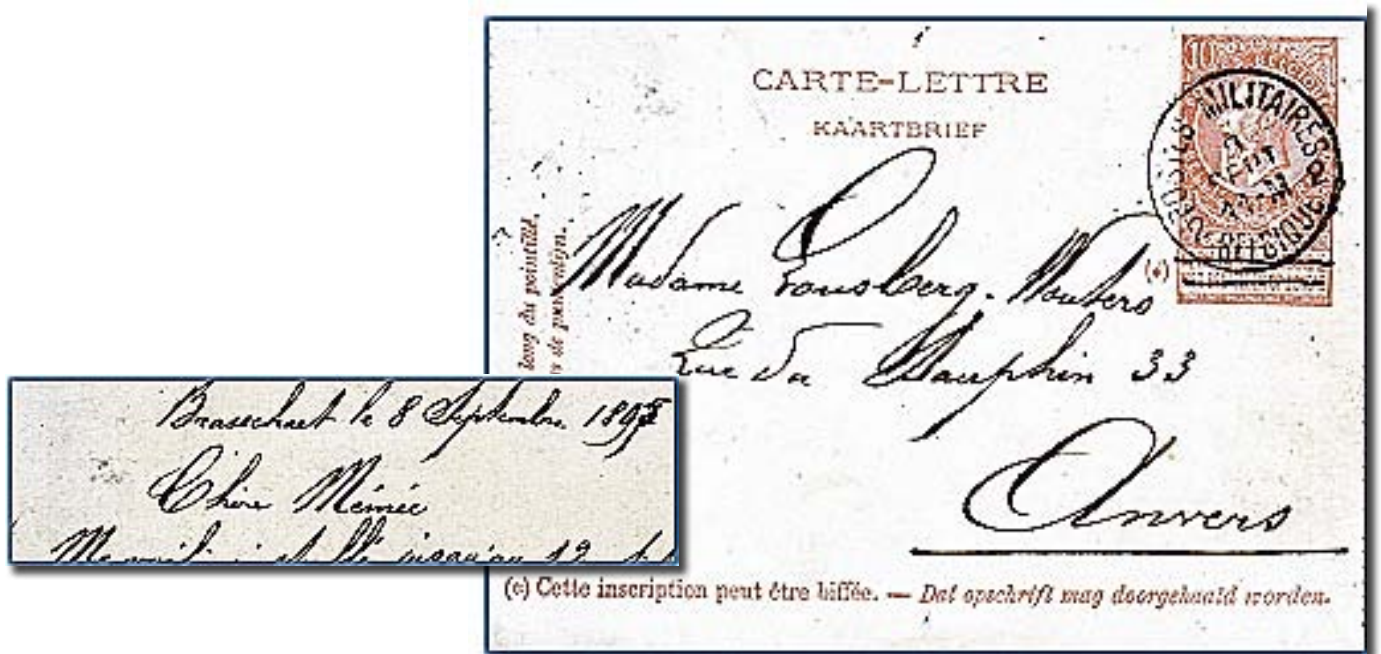 CARTE-LETTRE
KAARTBRIEF
10
POSTES MILITAIRES 2
BELGIQUE
long du pointillé.
de
(e)
Madame Lousberg-Wouters
Rue du Dauphin 33
Anvers
(e) Cette inscription peut être biffée. — Dat opschrift mag doorgehaald worden.
Brasschaet le 8 Septembre 1895
Chère Mémée
jusqu'au 12